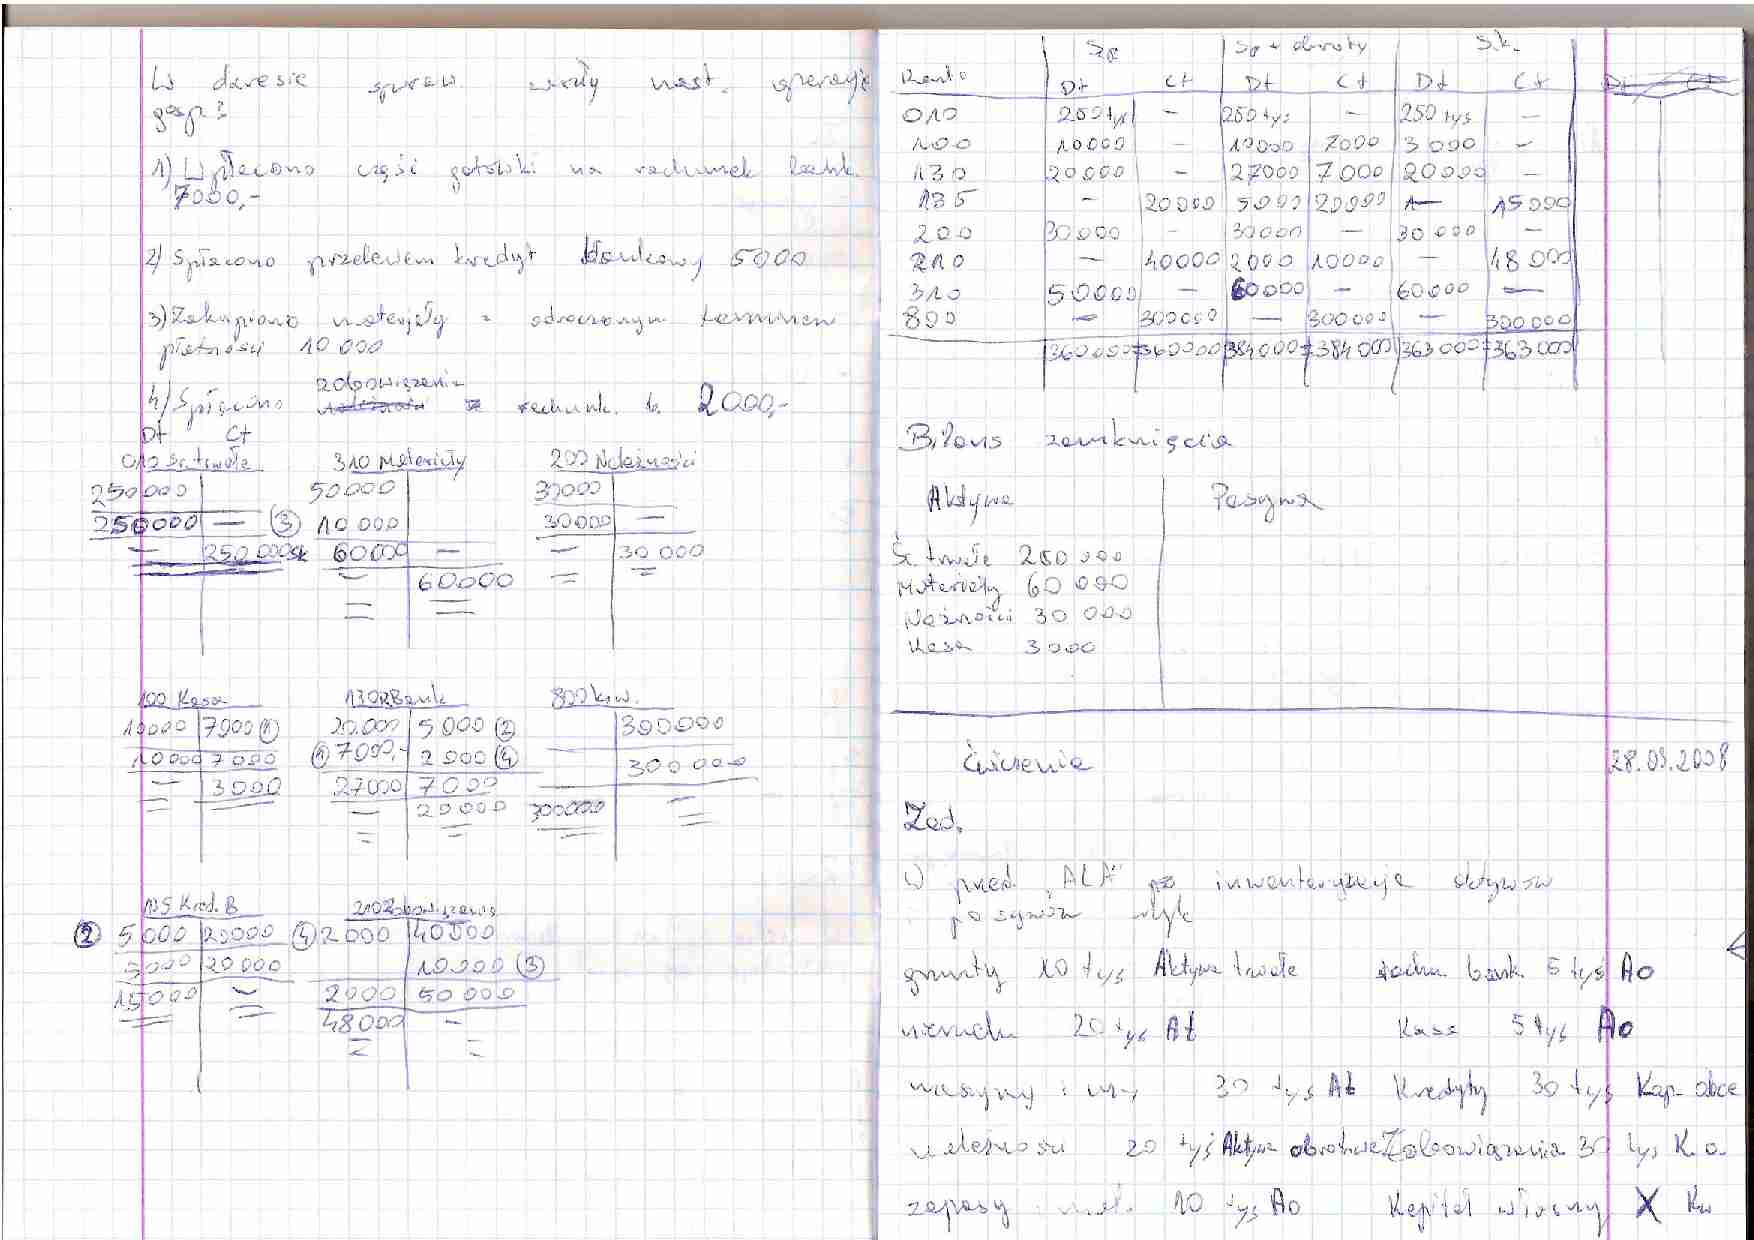 W okresie spraw. miały nast. operacje
gosp:
1) Wpłacono część gotówki na rachunek bank.
7000,-
2) Spłacono przelewem kredyt bankowy 5000
3) Zakupiono materiały z odroczonym terminem
płatności 10 000
zobowiązanie
4) Spłacono z rachunk. b. 2000,-
Dt Ct
010 Śr. trwałe 310 Materiały 200 Należności
250000 50000 30000
250000 — (3) 10 000 30000 —
— 250 000 Sk 60000 — — 30 000
— 60000
100 Kasa 130 R Bank 800 k.w.
10000 7000 (1) 20.000 5000 (2) 300000
10000 7000 (1) 7000,- 2000 (4) 300 000
— 3000 27000 7000
— 20000 300000 —
135 Kred. B 210 Zobowiązania
(2) 5000 20000 (4) 2000 40000
5000 20000 10.000 (3)
15000 — 2000 50 000
48000 —
Sp Sp + obroty S.k.
Konto Dt Ct Dt Ct Dt Ct
010 250 tyś — 250 tyś — 250 tyś —
100 10000 — 10000 7000 3000 —
130 20000 — 27000 7000 20000 —
135 — 20000 5000 20000 — 15000
200 30000 — 30000 — 30 000 —
210 — 40000 2000 10000 — 48 000
310 50000 — 60000 — 60000 —
800 — 300000 — 300000 — 300000
360000=360000 384000=384000 363000=363000
Bilans zamknięcia
Aktywa Pasywa
Śr. trwałe 250 000
Materiały 60 000
Należności 30 000
Kasa 3000
Ćwiczenia 28.09.2008
Zad.
W przed. "ALA" po inwenteryzacja aktywów
pasywów
grunty 10 tyś Aktywa trwałe rachu bank. 5 tyś Ao
20 tyś At Kasa 5 tyś Ao
maszyny i urz 30 tyś At Kredyty 30 tyś Kap. obce
należności 20 tyś Aktywa obrotowe Zobowiązania 30 tyś K.o.
zapasy mat. 10 tyś Ao Kapitał własny X Kw